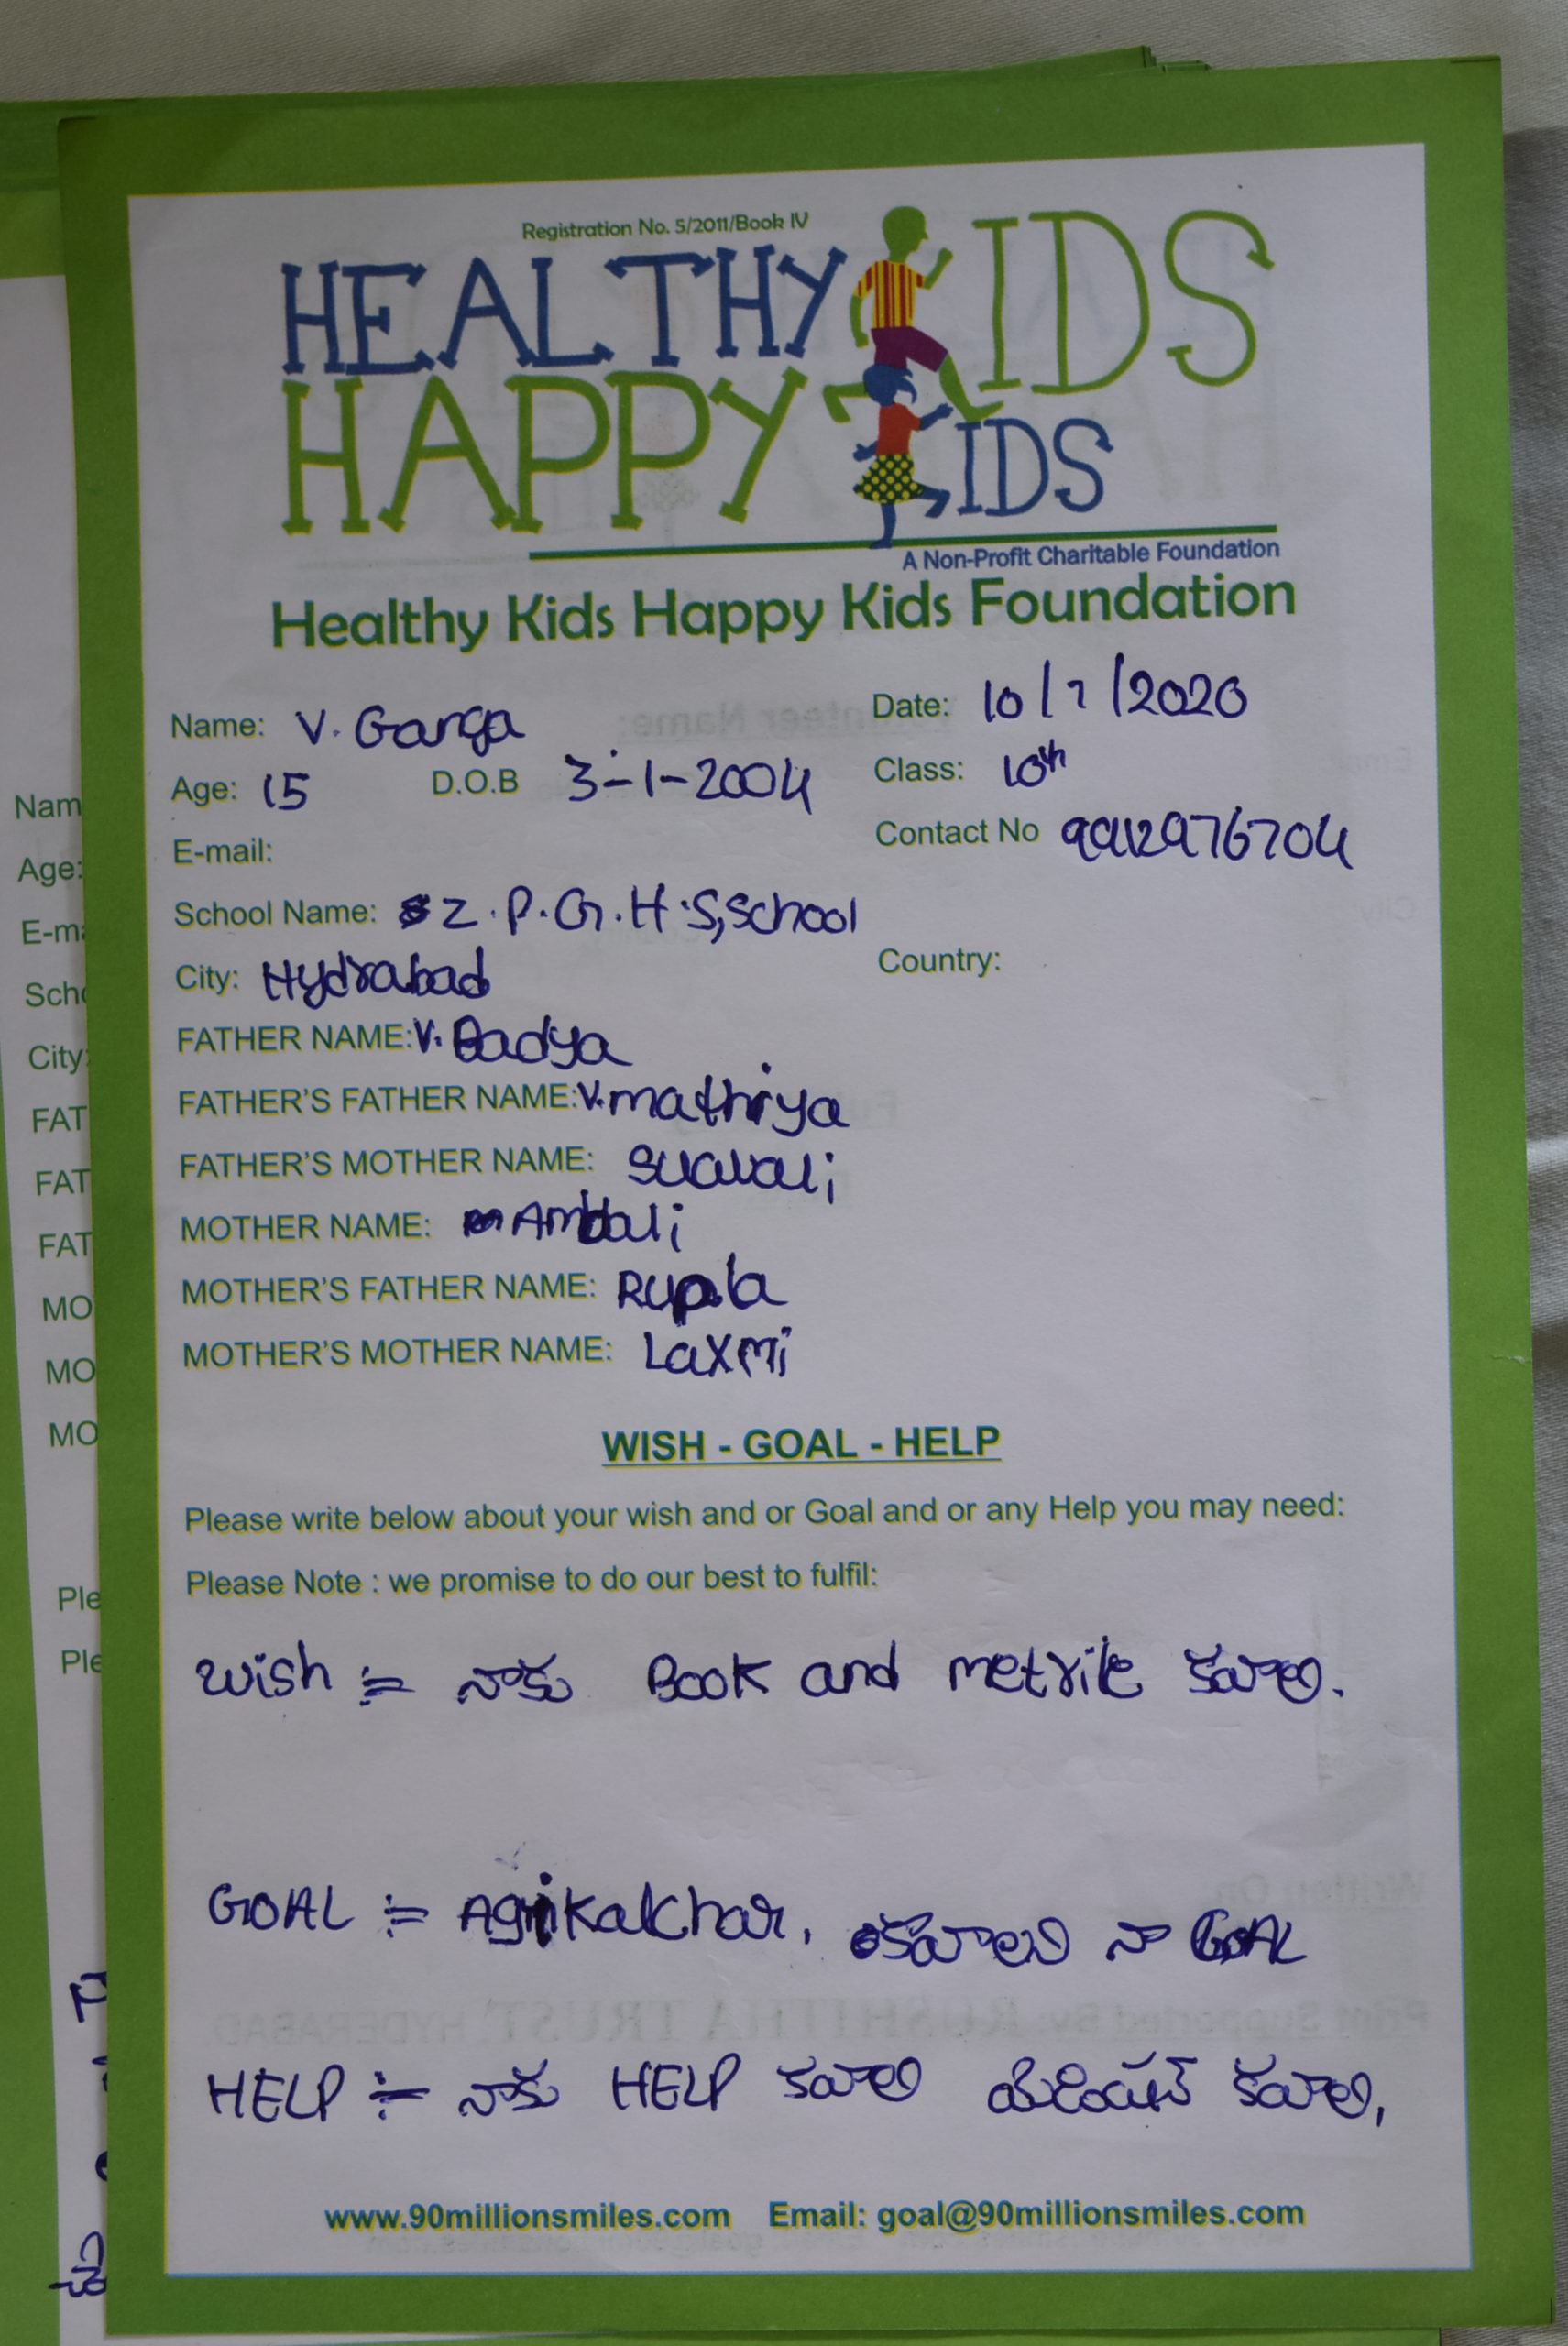 Registration No. 5/2011/Book IV
HEALTHY KIDS
HAPPY KIDS
A Non-Profit Charitable Foundation
Healthy Kids Happy Kids Foundation
Name: V. Ganga Date: 10/7/2020
Age: 15 D.O.B 3-1-2004 Class: 10th
E-mail: Contact No 9912976704
School Name: Z.P.G.H.S, School
City: Hydrabad Country:
FATHER NAME: V. Badya
FATHER'S FATHER NAME: V. mathriya
FATHER'S MOTHER NAME:
MOTHER NAME: Ambali
MOTHER'S FATHER NAME: Rupla
MOTHER'S MOTHER NAME: Laxmi
WISH - GOAL - HELP
Please write below about your wish and or Goal and or any Help you may need:
Please Note : we promise to do our best to fulfil:
wish := నాకు Book and metrile కవాలి.
GOAL := Agrikalchar, కావాలని నా GOAL
HELP := నాకు HELP కవాలి కవాలి,
www.90millionsmiles.com Email: goal@90millionsmiles.com